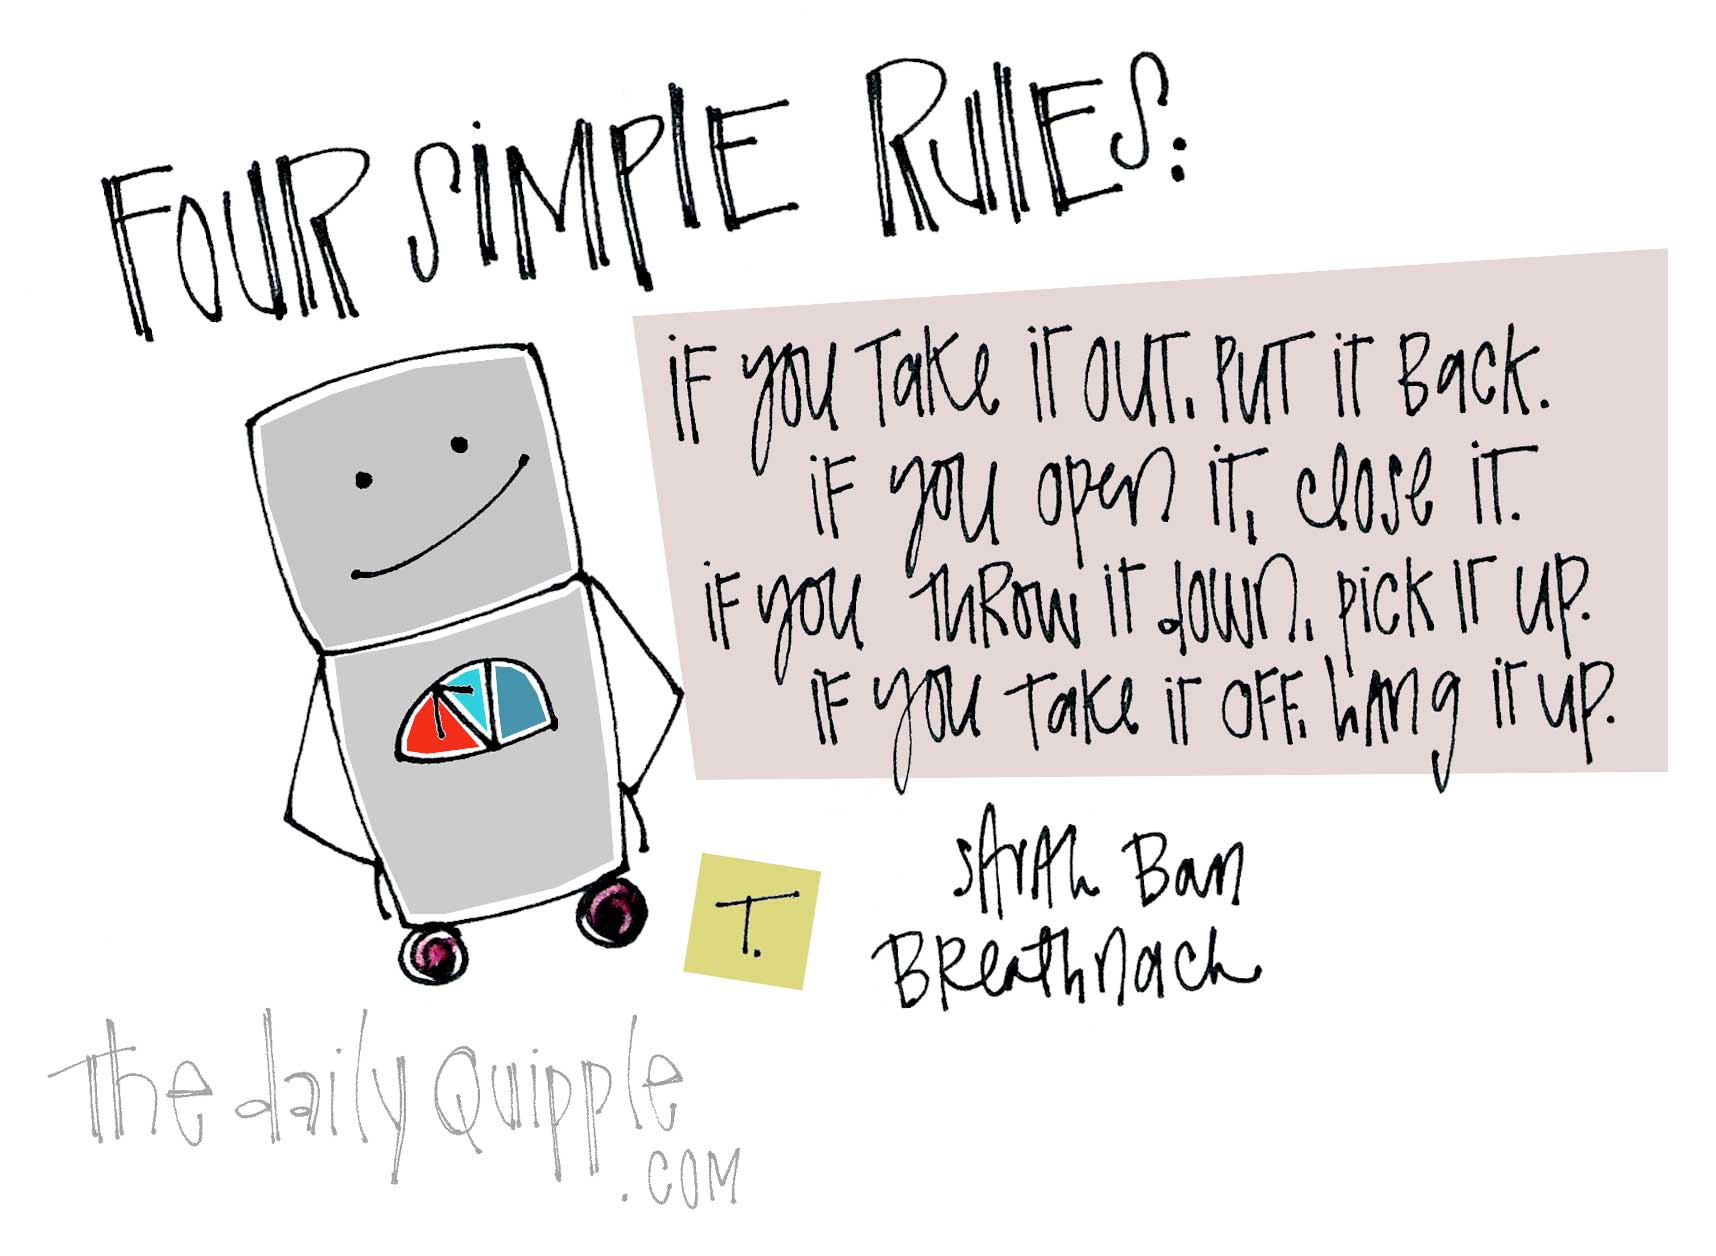 FOUR SIMPLE RULES:
if you Take it out, put it Back.
if you open it, close it.
if you throw it down, pick it up.
if you take it off, hang it up.
Sarah Ban
Breathnach
T.
the daily Quipple
.com